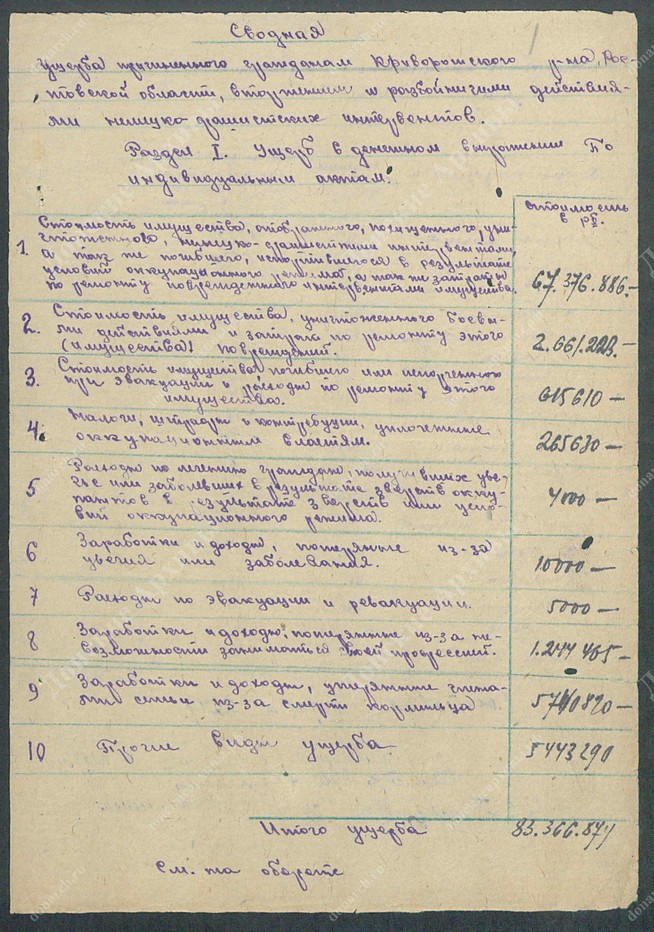 Сводная
1
ущерба причиненного гражданам Криворожского р-на, Рос-
товской области, вторжением и разбойничими действия-
ми немецко-фашистских интервентов.
Раздел I. Ущерб в денежном выражении По
индивидуальным актам.
стоимость
в рб.
Стоимость имущества, отобранного, похищенного, уни-
1. чтоженного, немецко-фашистскими интервентами,
а так же погибшего, испортившегося в результате
условий оккупационного режима, а так же затраты
по ремонту поврежденного интервентами имущества. 67.376.886.-
2. Стоимость имущества, уничтоженного боевы-
ми действиями и затрат по ремонту этого
(имущества) повреждений. 2.661.223.-
3. Стоимость имущества погибшего или испорченного
при эвакуации и расходы по ремонту этого
имущества. 615610 -
4. Налоги, штрафы и контрибуции, уплоченные
оккупационным властям. 265630 -
5 Расходы по лечению граждан, получивших уве-
чье или заболевших в результате зверств окку-
пантов в результате зверств или усло-
вий оккупационного режима. 4000 -
6 Заработки и доходы, потерянные из-за
увечия или заболевания. 10000 -
7 Расходы по эвакуации и реэвакуации. 5000 -
8 Заработки и доходы, потерянные из-за не-
возможности заниматься своей профессией. 1.244 465 -
9 Заработки и доходы, утерянные члена-
ми семьи из-за смерти кормильца 5740820 -
10 Прочие виды ущерба. 5443290
Итого ущерба 83.366.877
См. на обороте
donarch.ru